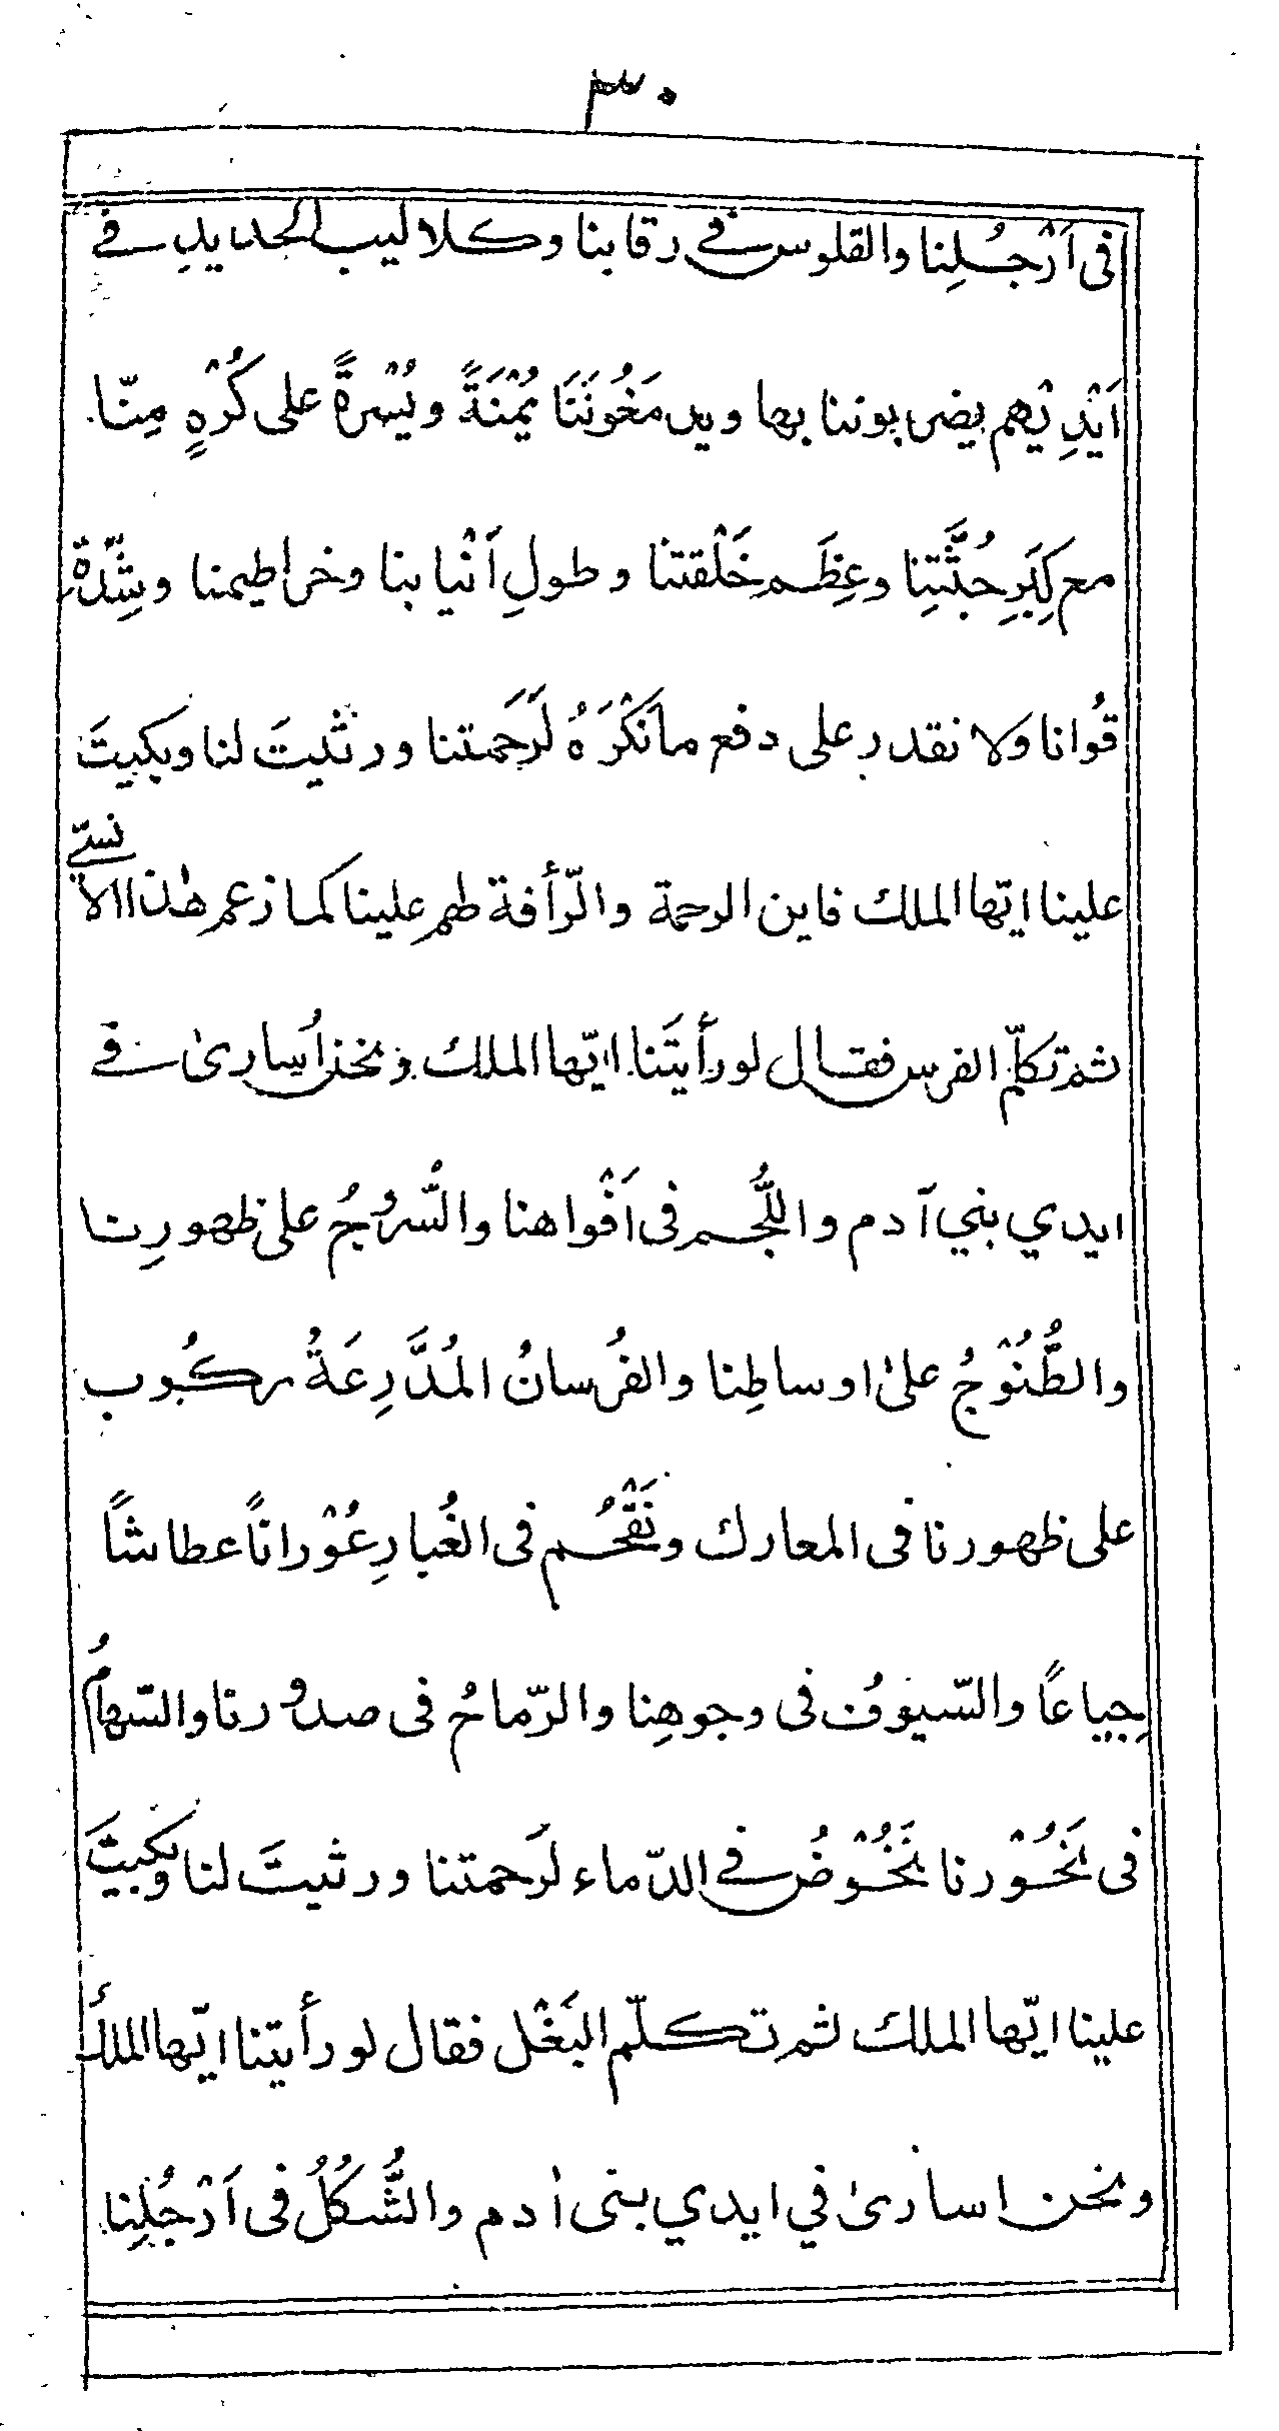 ٣٠
فى اَرْجُلِنا والقلوس فى رقابنا وكلاليب الحديدِ فے
اَيْدِيْهم يضربوننا بها ويدمغُونَنَا يُمْنَةً ويُسْرةً على كُرْهٍ مِنّا
مع كِبَرِ جُثَّتِنا وعِظَم خَلْقتنا وطولِ اَنْيابنا وخراطيمنا وشِدّة
قُوانا ولا نقدر على دفع ما نَكْرَهُ لَرَحَمتنا ورثيتَ لنا وبكيتَ
علينا ايّها الملك فاين الرحمة والرّأفة لهم علينا كما زعم هٰذا الا نسىّ
ثم تكلّم الفرس فقال لو رأيتَنا ايّها الملك ونحن اُسارىٰ فے
ايدي بني آدم واللُّجم فى اَفْواهنا والسُّروُجُ على ظهورِنا
والطُّنُوْجُ علىٰ اوساطِنا والفُرسانُ المُدَّرِعَةُ ركُوب
على ظهورنا فى المعارك ونَقْحُم فى الغُبارِ عُوْراناً عطاشاً
جِياعاً والسّيوفُ فى وجوهِنا والرّماحُ فى صدورنا والسّهامُ
فى نَحُوْرنا نَخُوْضُ فے الدّماء لَرَحمتنا ورثيتَ لنا وبكيتَ
علينا ايّها الملك ثم تكلّم البَغْل فقال لو رأيتنا ايّها الملكُ
ونحن اسارىٰ في ايدي بنى اٰدم والشُّكُلُ فى اَرْجُلِنا